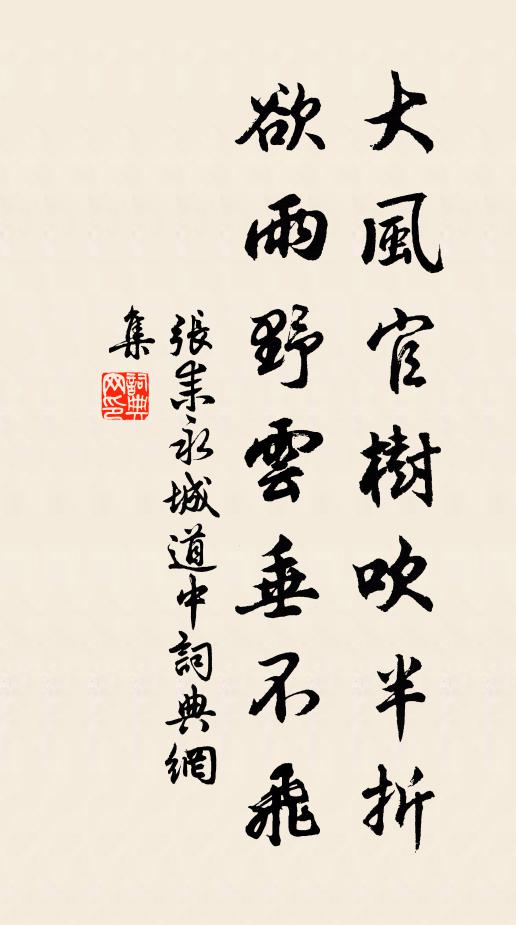 大風官樹吹半折
欲雨野雲垂不飛
張耒永城道中詞典網
集
詞典
网印